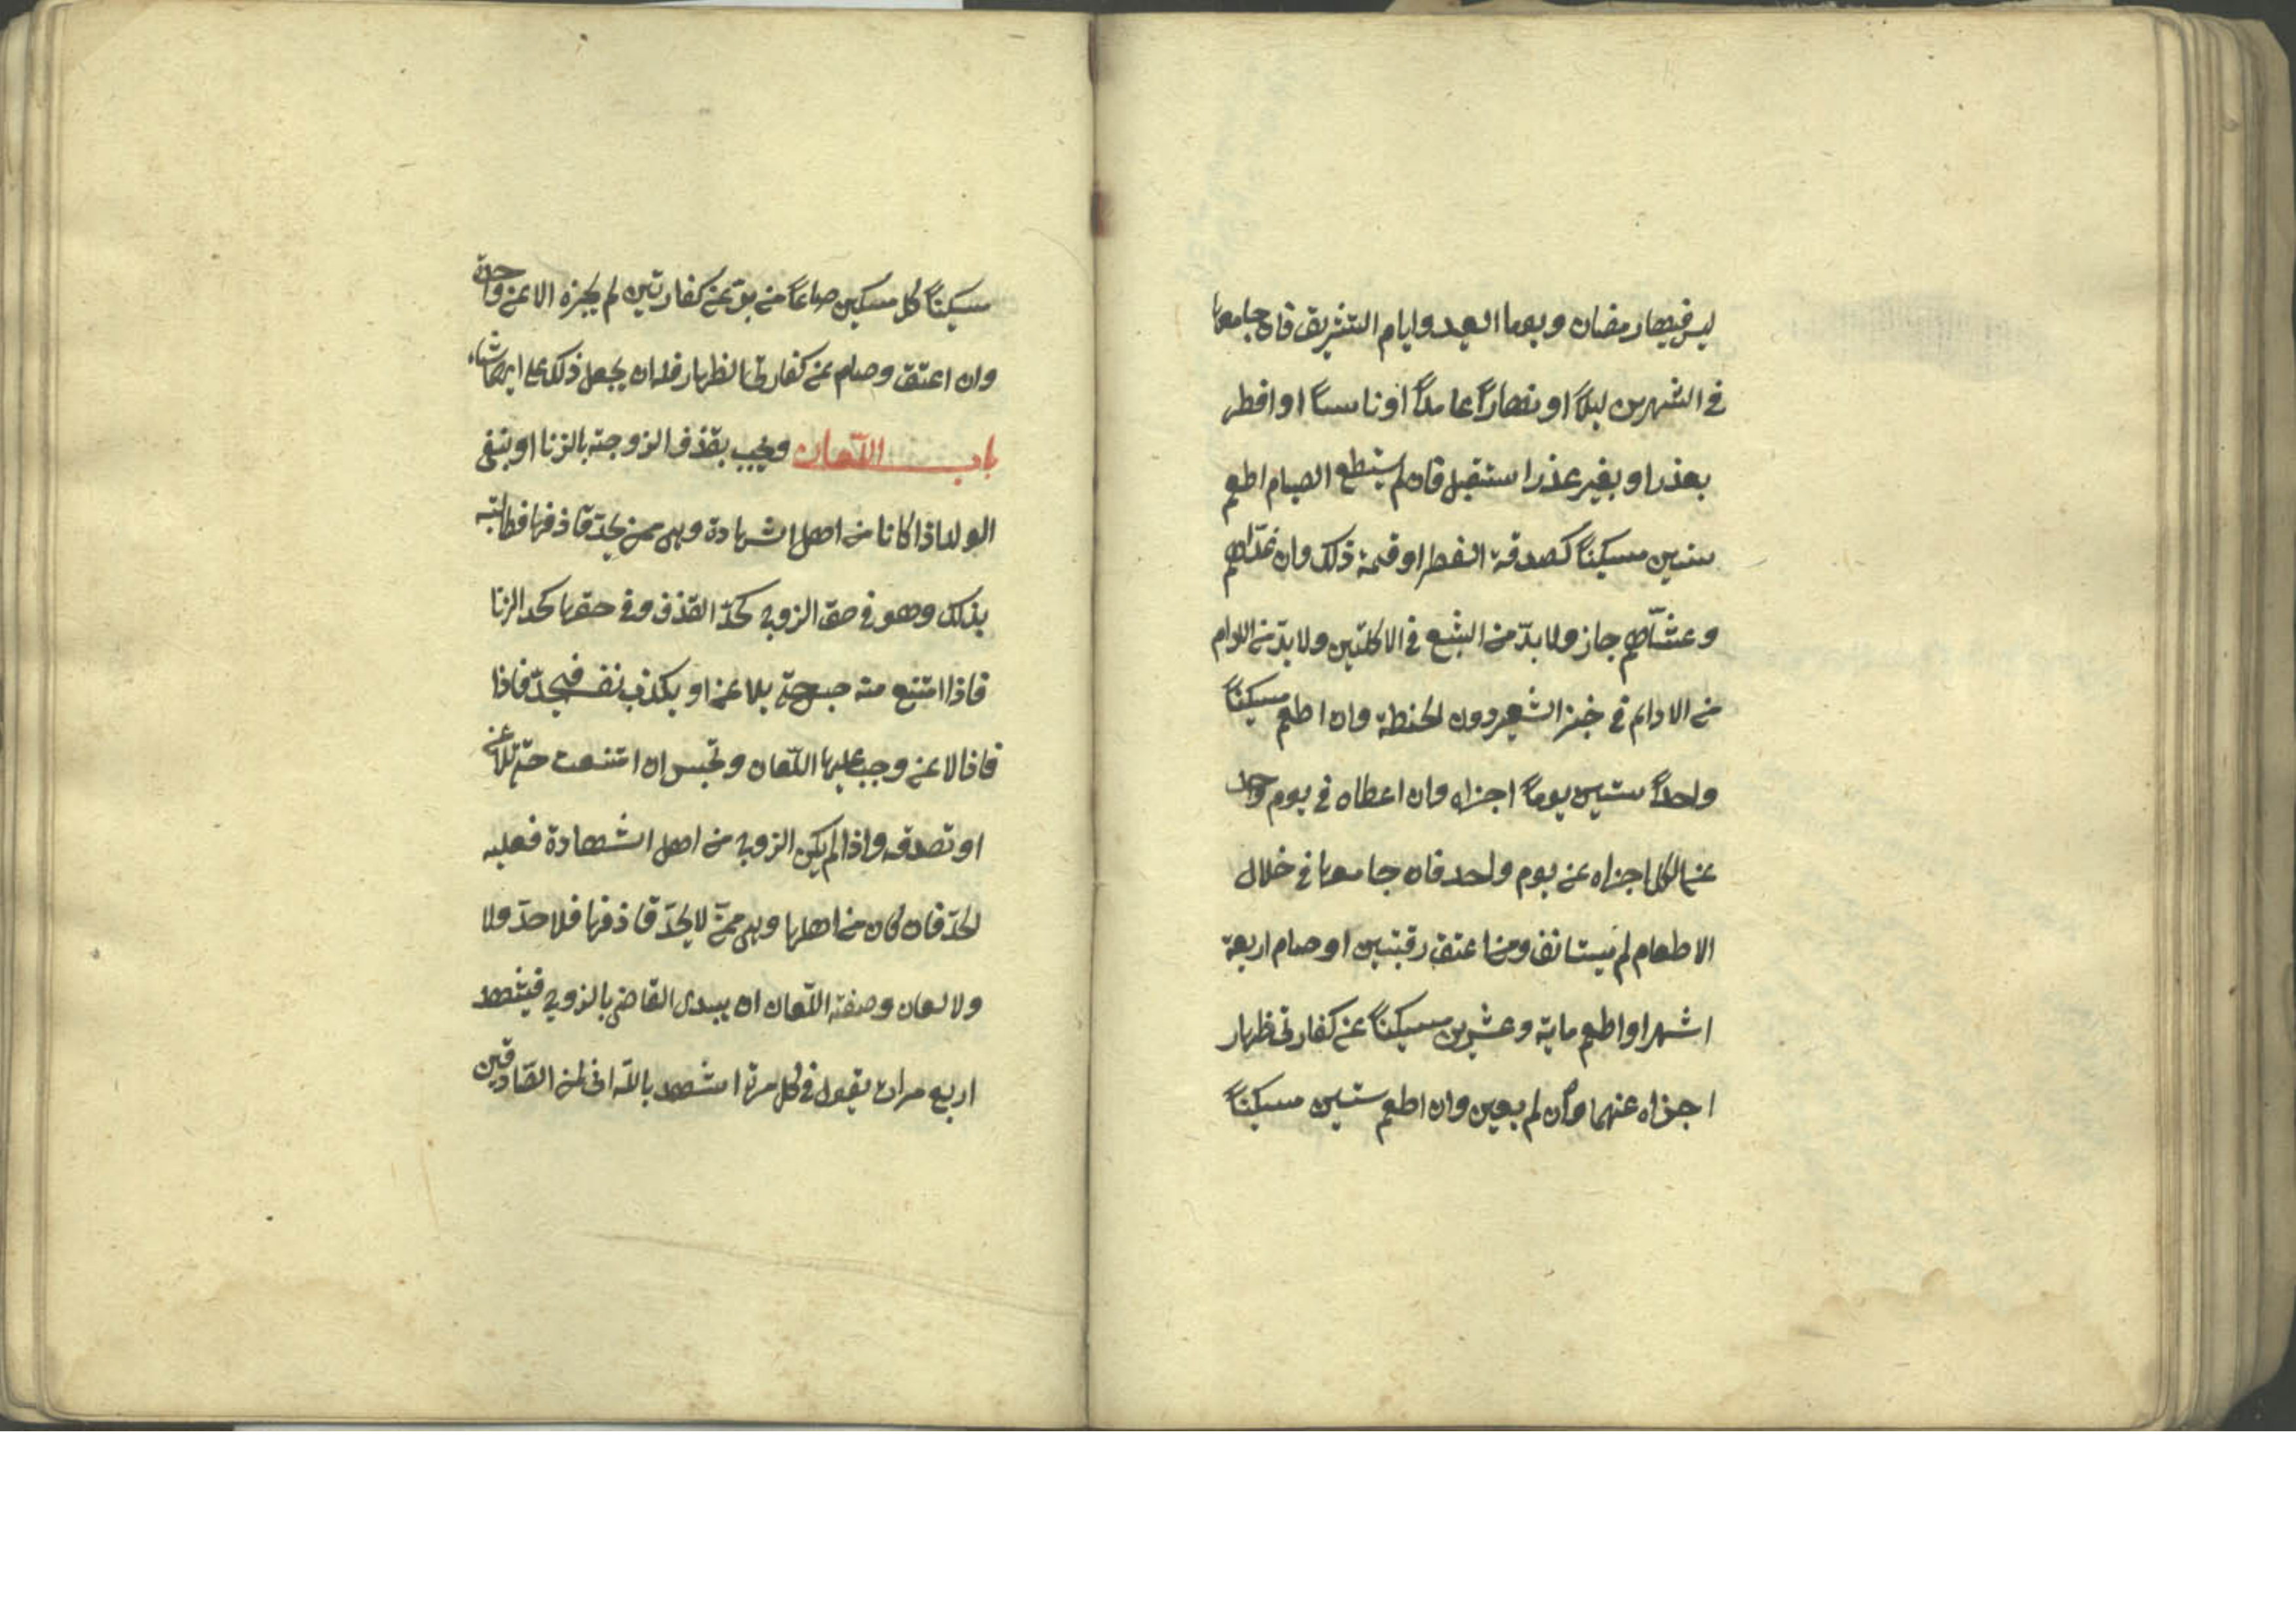 ليس فيها رمضان ويوما العيد وايام التشريق فان جامعها
في الشهرين ليلاً او نهاراً عامداً او ناسياً او افطر
بعذر او بغير عذر استقبل فان لم يستطع الصيام اطعم
ستين مسكيناً كصدقة الفطر او قيمة ذلك وان غدّاهم
وعشّاهم جاز ولا بدّ من الشبع في الاكلتين ولا بدّ من الادام
من الادام في خبز الشعير دون الحنطة وان اطعم مسكيناً
واحداً ستين يوماً اجزاه وان اعطاه في يوم واحد
عن الكل اجزاه عن يوم واحد فان جامعها في خلال
الاطعام لم يستانف ومن اعتق رقبتين او صام اربعة
اشهر او اطعم ماية وعشرين مسكيناً عن كفارتي ظهار
اجزاه عنهما وان لم يعين وان اطعم ستين مسكيناً
مسكيناً كل مسكين صاعاً من برّ عن كفارتين لم يجزه الا عن واحدة
وان اعتق وصام عن كفارتي الظهار فله ان يجعل ذلك عن ايهما شاء
باب اللّعان ويجب بقذف الزوجة بالزنا او بنفي
الولد اذا كانا من اهل الشهادة وهي ممن يحدّ قاذفها فطالبته
بذلك وهو في حق الزوج كحدّ القذف وفي حقها كحد الزنا
فاذا امتنع منه حبس حتى يلاعن او يكذب نفسه فيحدّ فاذا
فاذا لاعن وجب عليها اللّعان وتحبس ان امتنعت حتى تلاعن
او تصدقه واذا لم يكن الزوج من اهل الشهادة فعليه
الحدّ فان كان من اهلها وهي ممّن لا يحدّ قاذفها فلا حدّ ولا
ولا لعان وصفة اللّعان ان يبتدى القاضي بالزوج فيشهد
اربع مرات يقول في كل مرة اشهد بالله اني لمن الصّادقين